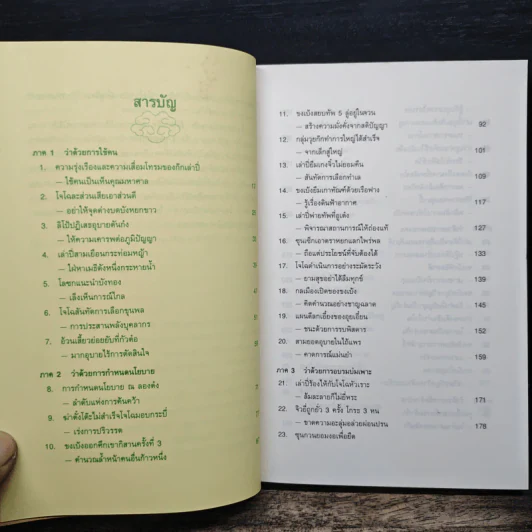 สารบัญ
ภาค 1 ว่าด้วยการใช้คน
1. ความรุ่งเรืองและความเสื่อมโทรมของก๊กเล่าปี่
— ใช้คนเป็นเห็นคุณมหาศาล
2. โจโฉละส่วนเสียเอาส่วนดี
— อย่าให้จุดด่างบดบังหยกขาว
3. ลิโป้ปฏิเสธอุบายตันก๋ง
— ให้ความเคารพต่อภูมิปัญญา
4. เล่าปี่สามเยือนกระท่อมหญ้า
— ใฝ่หาเมธีดังหนึ่งกระหายน้ำ
5. โลซกแนะนำบังทอง
— เล็งเห็นการณ์ไกล
6. โจโฉสันทัดการเลือกขุนพล
— การประสานพลังบุคลากร
7. อ้วนเสี้ยวย่อยยับที่กัวต๋อ
— มากอุบายไร้การตัดสินใจ
ภาค 2 ว่าด้วยการกำหนดนโยบาย
8. การกำหนดนโยบาย ณ ลองต๋ง
— ลำดับแห่งการค้นคว้า
9. ฆ่าตั๋งโต๊ะไม่สำเร็จโจโฉมอบกระบี่
— เร่งการปริวรรต
10. ขงเบ้งออกศึกเขากิสานครั้งที่ 3
— คำนวณล้ำหน้าคนอื่นก้าวหนึ่ง
11. ขงเบ้งสยบทัพ 5 สู่อยู่ในสวน
— สร้างความมั่งคั่งจากสติปัญญา 92
12. กลุ่มวุยก๊กทำการใหญ่ได้สำเร็จ
— จากเล็กสู่ใหญ่ 101
13. เล่าปี่ยืมเกงจิ๋วไม่ยอมคืน
— สันทัดการเลือกทำเล 109
14. ขงเบ้งยืมเกาทัณฑ์ด้วยเรือฟาง
— รู้เรื่องดินฟ้าอากาศ 117
15. เล่าปี่พ่ายทัพที่อูเต๋ง
— พิจารณาสถานการณ์ให้ถ่องแท้ 127
16. ซุนเซ็กเอาตราหยกแลกไพร่พล
— ถือแต่ประโยชน์ที่จับต้องได้ 133
17. โจโฉดำเนินการอย่างระมัดระวัง
— ยามสุขอย่าได้ลืมทุกข์ 139
18. กลเมืองเปิดของขงเบ้ง
— คิดคำนวณอย่างชาญฉลาด 145
19. แผนตีลกเอี๋ยงของอุยเอี๋ยน
— ชนะด้วยการรบพิสดาร 152
20. สามยอดอุบายในไอ้แพร
— คาดการณ์แม่นยำ 159
ภาค 3 ว่าด้วยการอบรมบ่มเพาะ
21. เล่าปี่ร้องไห้กับโจโฉหัวเราะ
— ล้มละลายก็ไม่ยี่หระ 171
22. จิวยี่ถูกยั่ว 3 ครั้ง โกรธ 3 หน
— ขาดความอะลุ่มอล่วยผ่อนปรน 178
23. ซุนกวนยอมงอเพื่อยืด